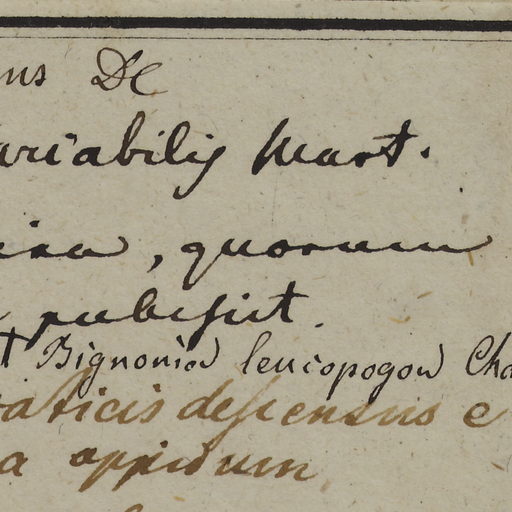 ns DC
ariabilis Mart.
ina, quorum
pubescit.
t Bignonia leucopogon Cha
aticis descensus e
a oppidum